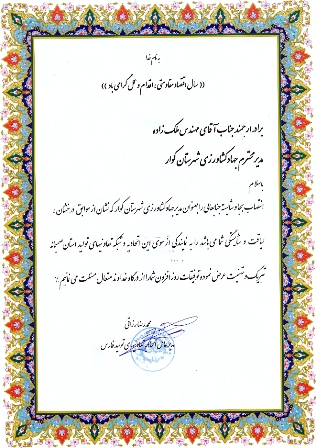 بنام خدا
(( سال اقتصاد مقاومتی ، اقدام و عمل گرامی باد ))
برادر ارجمند جناب آقای مهندس ملک زاده
مدیر محترم جهاد کشاورزی شهرستان کوار
با سلام
انتصاب بجا و شایسته جنابعالی را بعنوان مدیر جهاد کشاورزی شهرستان کوار که نشان از سوابق درخشان ،
لیاقت و شایستگی شما می باشد را به نمایندگی از سوی این اتحادیه و شبکه تعاونیهای تولید استان صمیمانه
تبریک و تهنیت عرض نموده توفیقات روز افزون شما را از درگاه خداوند متعال مسئلت می نمایم ٪
محمدرضا رزاقی
مدیر عامل اتحادیه تعاونیهای تولید فارس